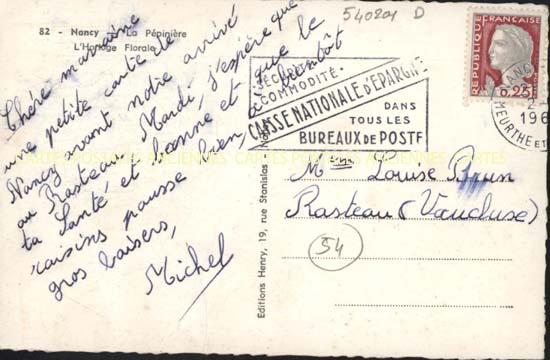 82 - Nancy - La Pépinière
L'Horloge Florale
540201 D
Chère marraine
une petite carte de
Nancy avant notre arrivé
au Rasteau, Mardi, j'espère que
ta Santé et bonne et que le
raisins pousse bien, a bientôt
gros baisers,
Michel
SÉCURITÉ
COMMODITÉ
CAISSE NATIONALE D'EPARGNE
DANS
TOUS LES
BUREAUX DE POSTE
REPUBLIQUE FRANÇAISE
0,25
NANC
2-
196
MEURTHE ET
CARTES POSTALES ANCIENNES CARTES POSTALES ANCIENNES CARTES
Mme Louise Brun
Rasteau (Vaucluse)
54
Editions Henry, 19, rue Stanislas